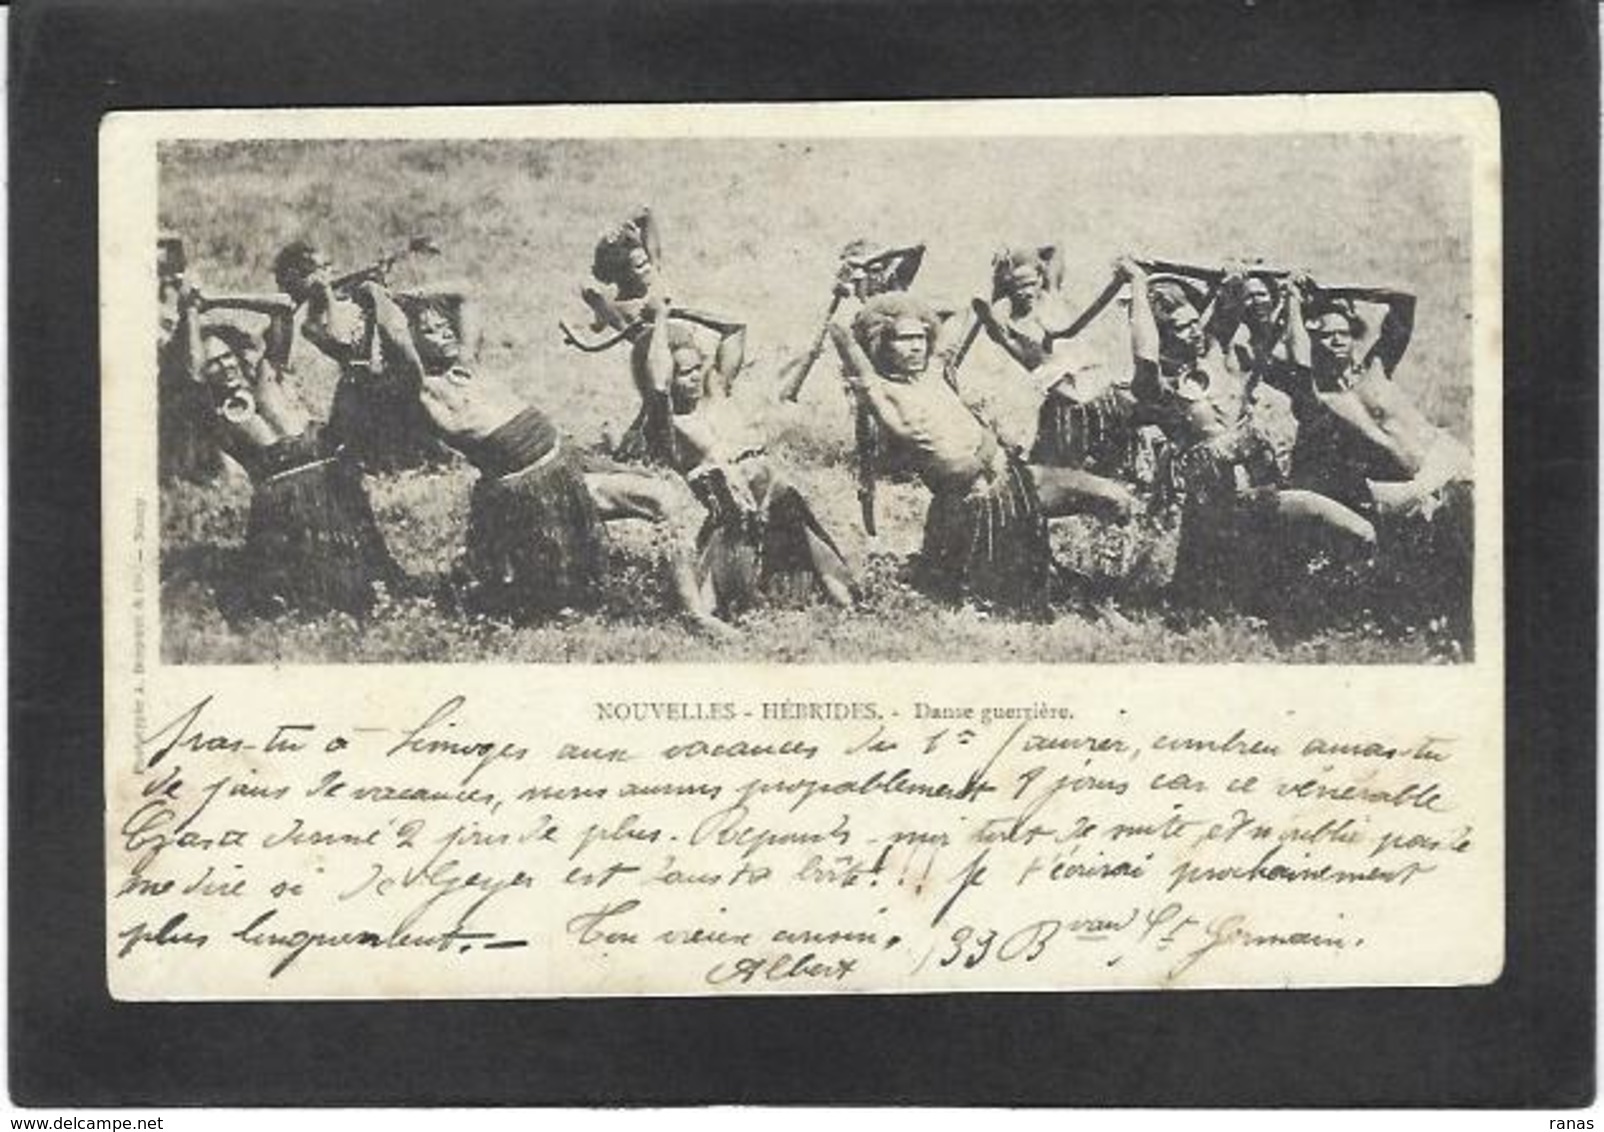 NOUVELLES - HÉBRIDES. - Danse guerrière.
Iras-tu à Limoges aux vacances du 1er Janvier, combien auras-tu
de jours de vacances, nous aurons probablement 9 jours car ce vénérable
a donné 2 jours de plus. Réponds-moi tout de suite et n'oublie pas de
me dire si de est brûte!!! Je t'écrirai prochainement
plus longuement. — Ton vieux cousin,
Albert 133 Bvard St Germain.
Phototypie A. Bergeret & Cie. — Nancy
www.delcampe.net
ranas